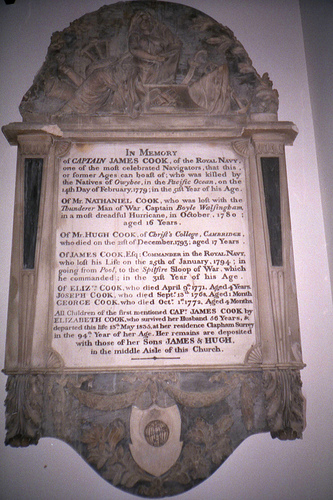 In Memory
of CAPTAIN JAMES COOK, of the Royal Navy,
one of the most celebrated Navigators, that this,
or former Ages can boast of; who was killed by
the Natives of Owyhee, in the Pacific Ocean, on the
14th Day of February, 1779; in the 51st Year of his Age.
Of Mr. NATHANIEL COOK, who was lost with the
Thunderer Man of War, Captain Boyle Walsingham,
in a most dreadful Hurricane, in October, 1780;
aged 16 Years.
Of Mr. HUGH COOK, of Christ's College, Cambridge,
who died on the 21st of December, 1793; aged 17 Years.
Of JAMES COOK, Esq; Commander in the Royal Navy,
who lost his Life on the 25th of January, 1794; in
going from Pool, to the Spitfire Sloop of War, which
he commanded; in the 31st Year of his Age.
Of ELIZth. COOK, who died April 9th. 1771. Aged 4 Years.
JOSEPH COOK, who died Septr. 13th 1768. Aged 1 Month
GEORGE COOK, who died Octr. 1st. 1772. Aged 4 Months
All Children of the first mentioned CAPt. JAMES COOK by
ELIZABETH COOK, who survived her Husband 56 Years, &
departed this life 13th May 1835, at her residence Clapham Surrey
in the 94th Year of her Age. Her remains are deposited
with those of her Sons JAMES & HUGH,
in the middle Aisle of this Church.